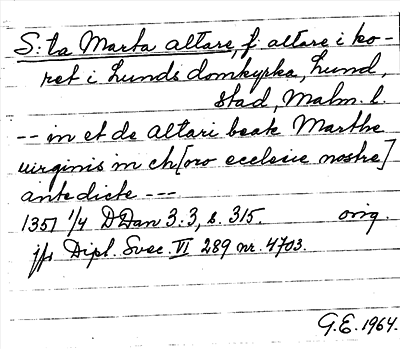 S:ta Marta altare, f. altare i ko-
ret i Lunds domkyrka, Lund,
stad, Malm. l.
-- in et de altari beate Marthe
uirginis in ch[oro ecclesie nostre]
antedicte ---
1351 1/4 DDan 3:3, s. 315. orig.
jfr Dipl. Svec. VI 289 nr. 4703.
G.E. 1964.